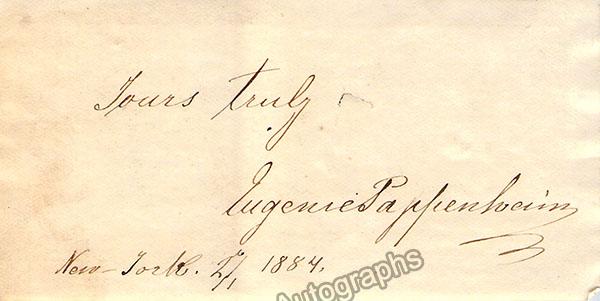 Yours truly
Eugenie Pappenheim
New-York. 17/1 1884.
Autographs